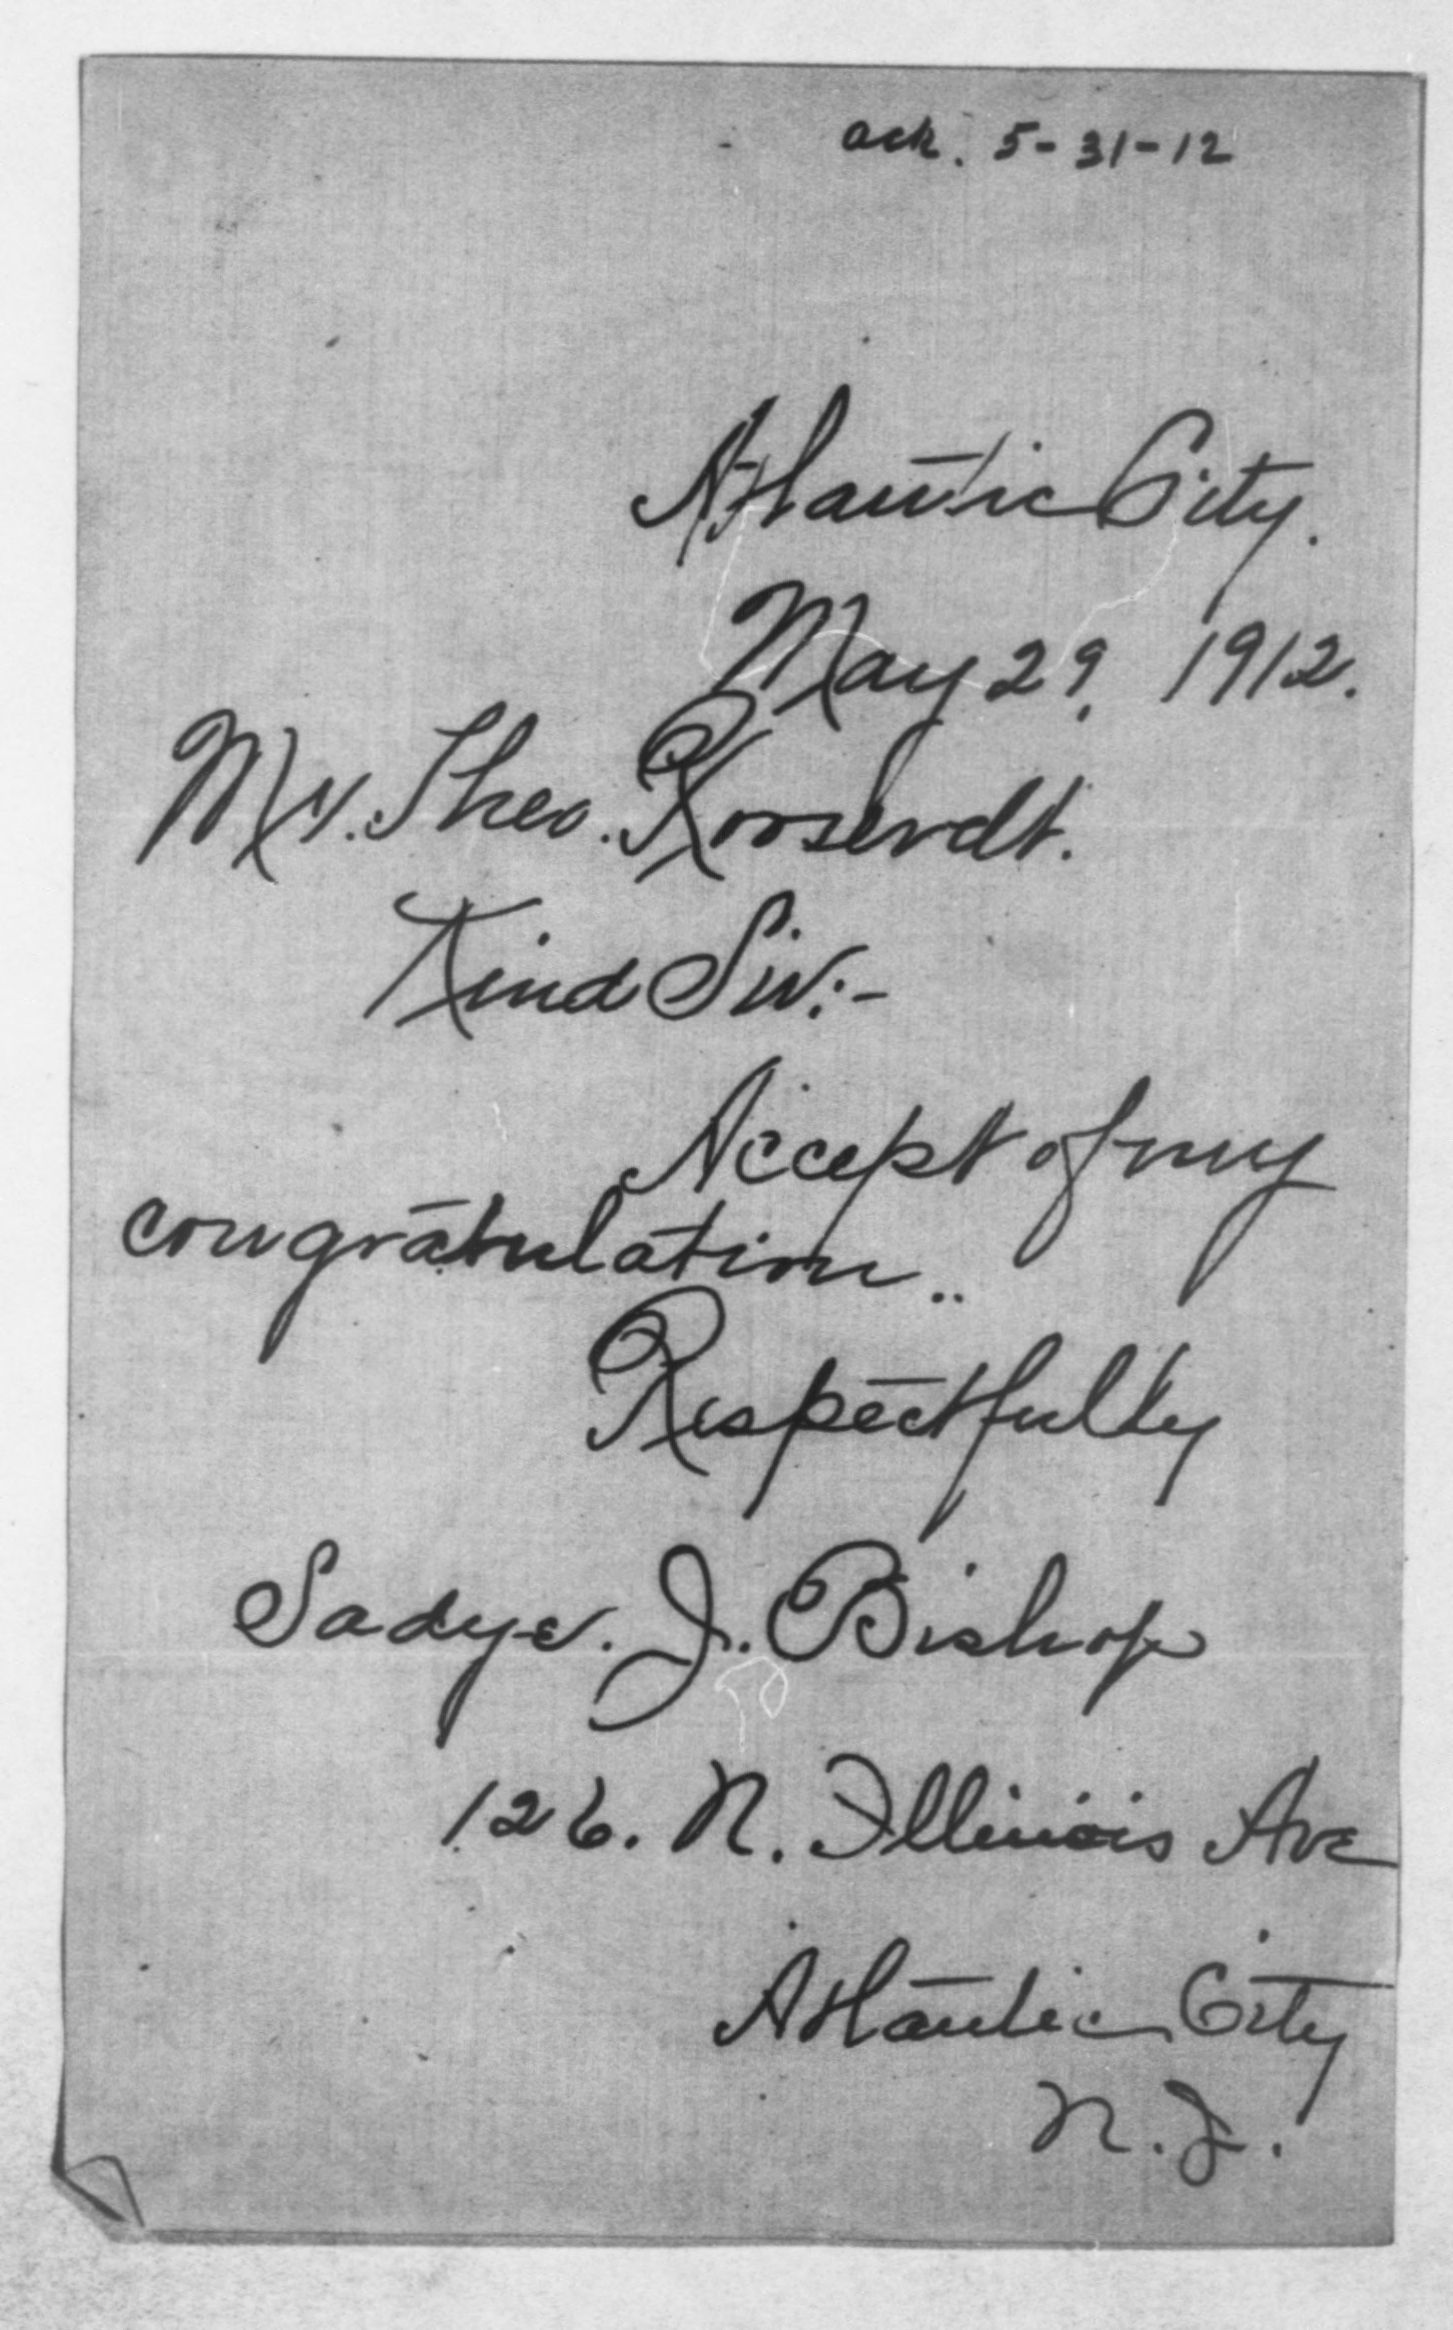 ack. 5-31-12
Atlantic City.
May 29, 1912.
Mr. Theo. Roosevelt.
Kind Sir:-
Accept of my
congratulation..
Respectfully
Sadye. J. Bishop
126. N. Illinois Ave
Atlantic City
N.J.